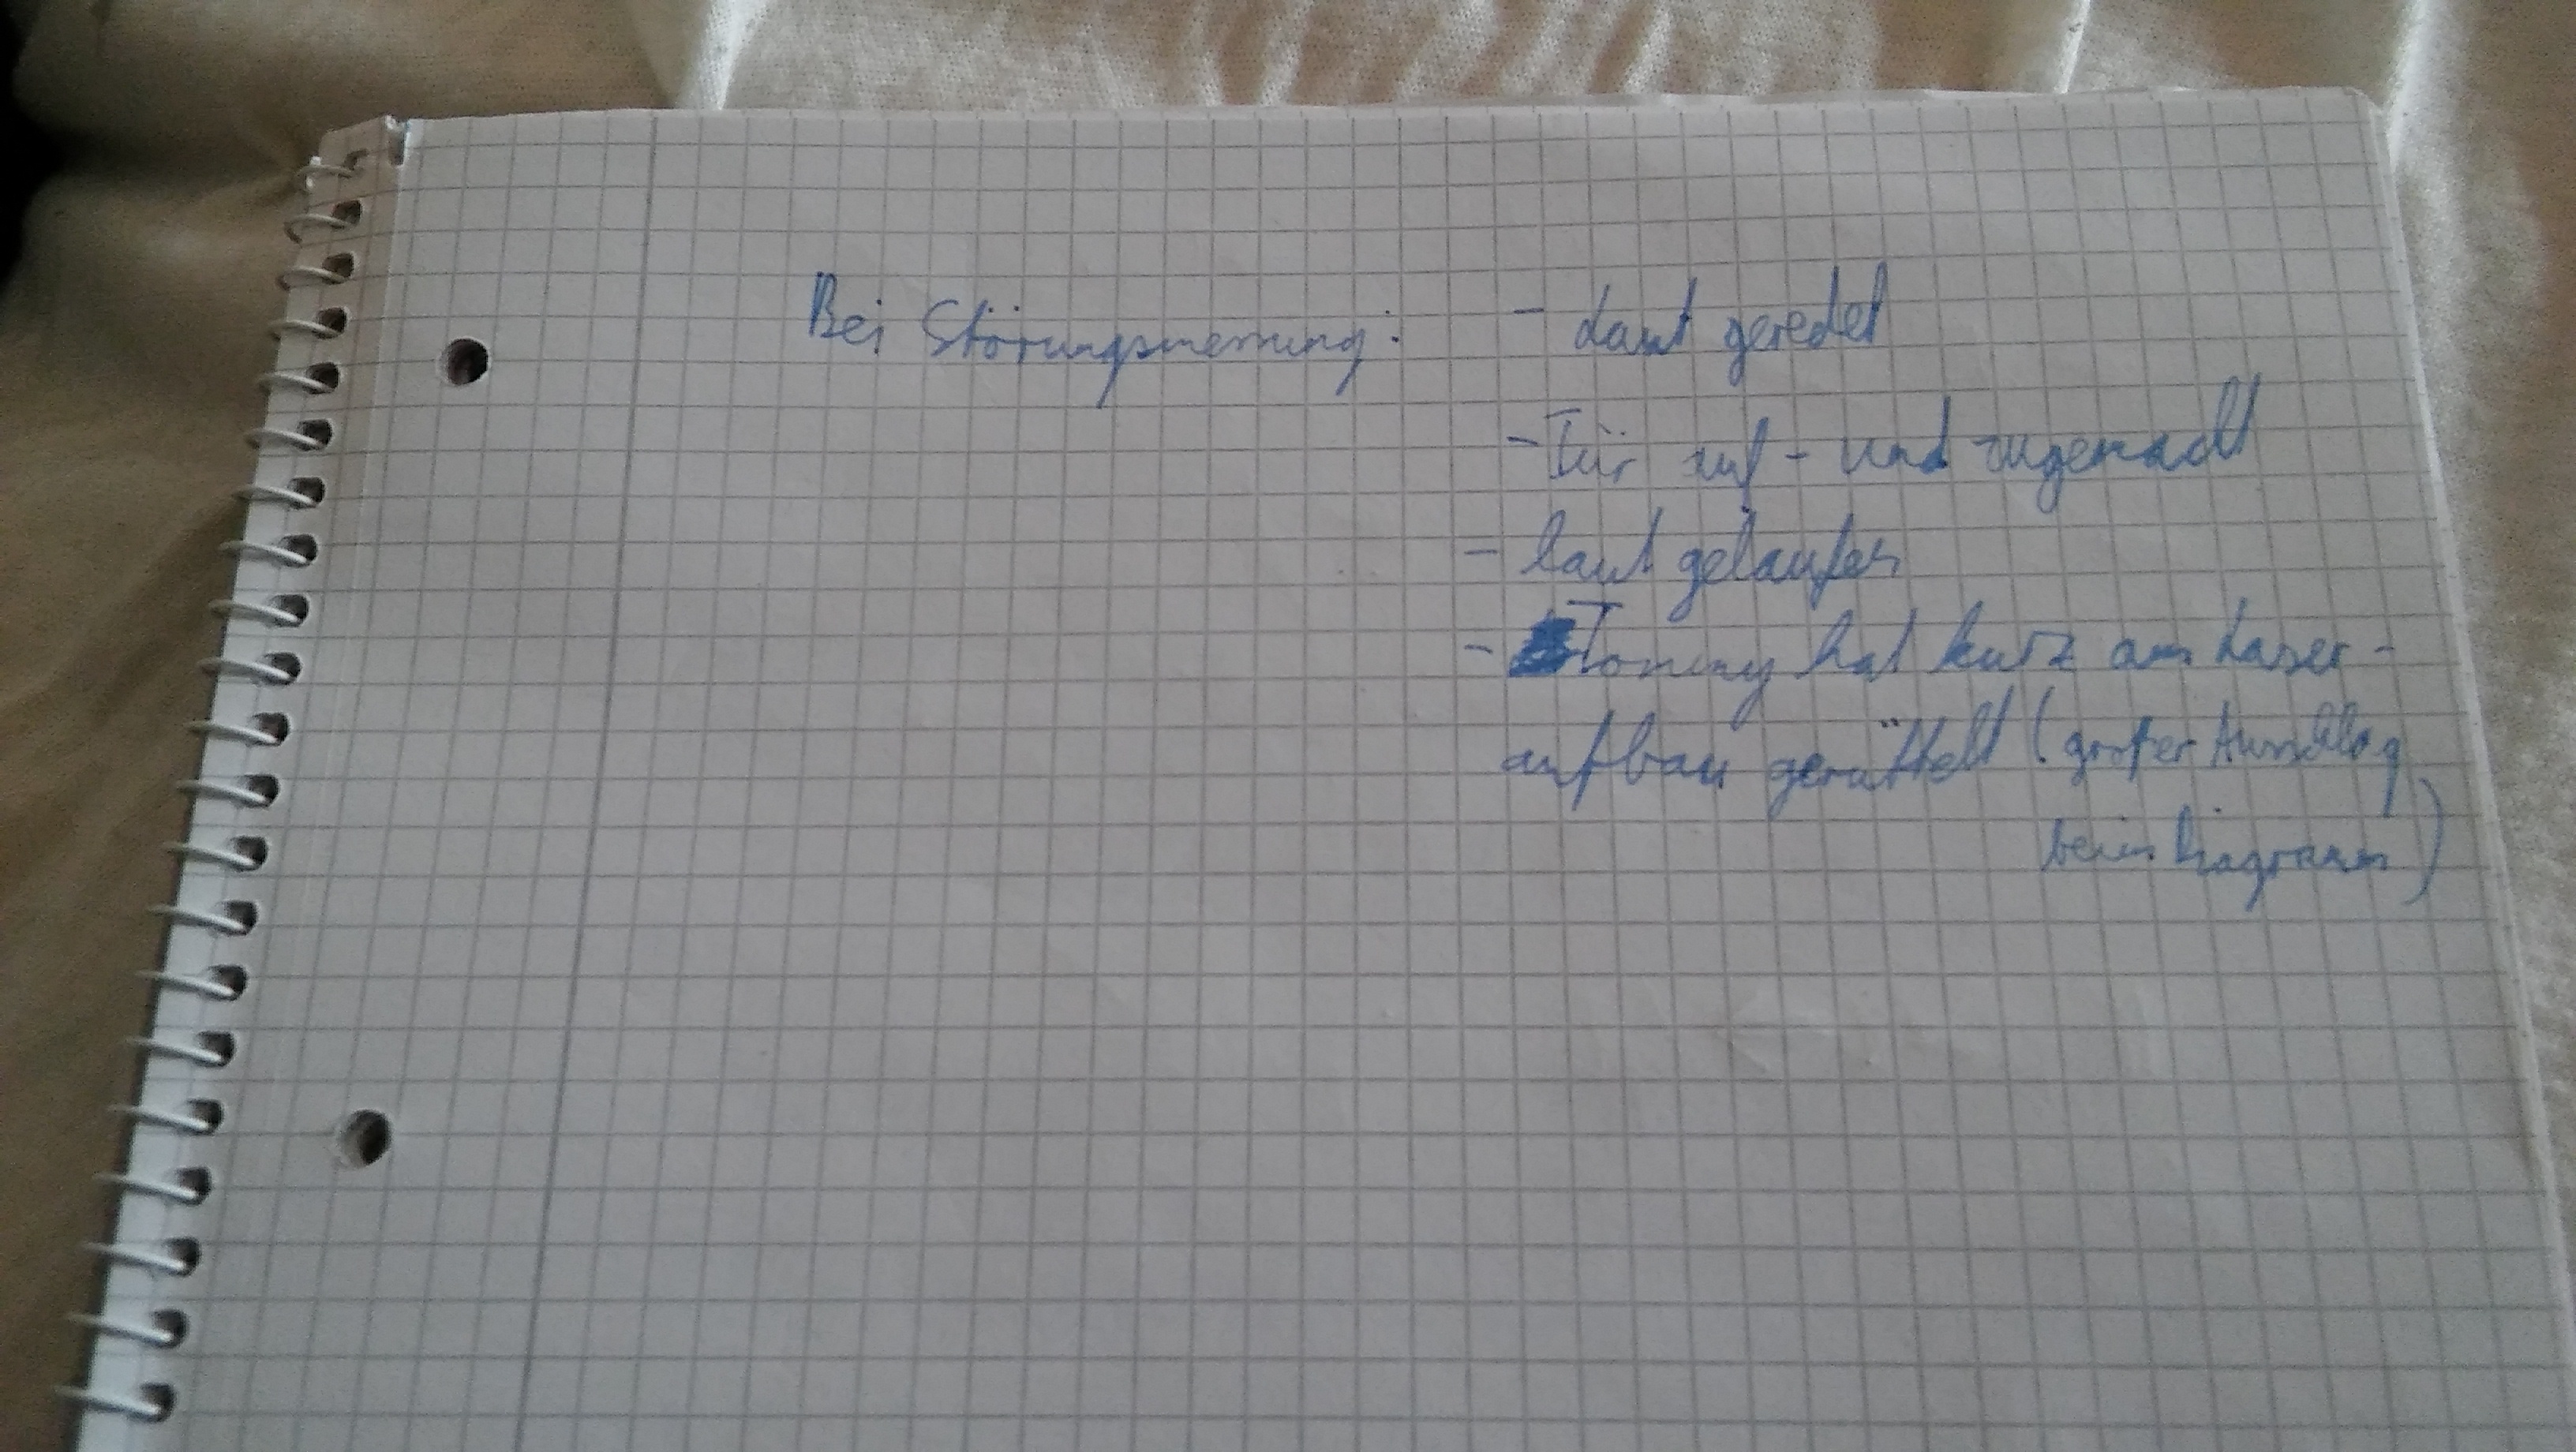 Bei Störungsmessung: - Laut geredet
- Tür auf- und zugemacht
- laut gelaufen
- Tommy hat kurz am Laser-
aufbau gerüttelt (großer Ausschlag
beim Diagramm)